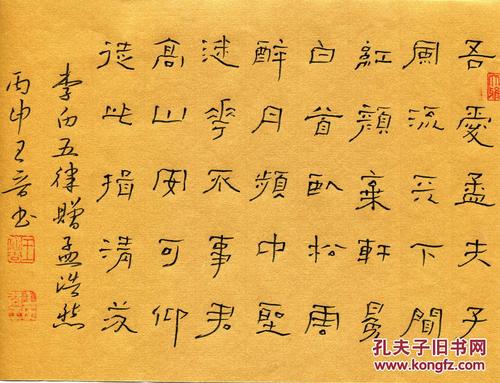 吾愛孟夫子
風流天下聞
紅顏棄軒冕
白首臥松雲
醉月頻中聖
迷花不事君
高山安可仰
徒此揖清芬
李白五律贈孟浩然
丙申王音书
孔夫子旧书网
www.kongfz.com